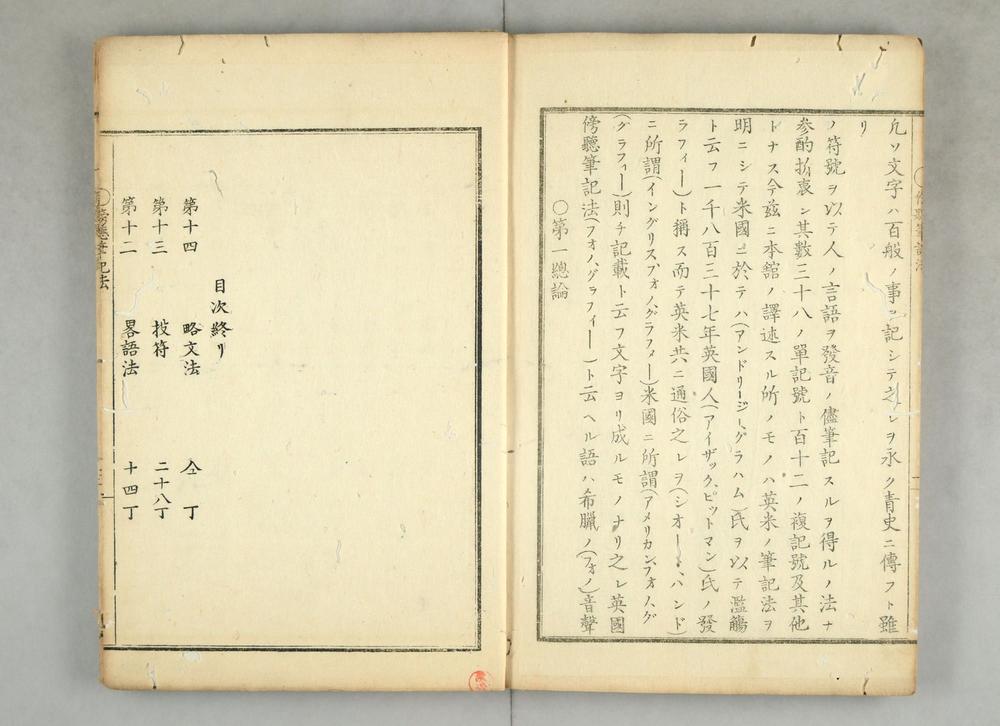 ○傍聽筆記法
第十二 畧語法 十四丁
第十三 投符 二十八丁
第十四 略文法 仝 丁
目次終リ
○第一總論
傍聽筆記法(フォノ、グラフィー)ト云ヘル語ハ希臘ノ(フォノ)音聲
(グラフィー)則チ記載ト云フ文字ヨリ成ルモノナリ之レ英國
ニ所謂(イングリス、フォノ、グラフィー)米國ニ所謂(アメリカン、フォノ、グ
ラフィー)ト稱ス而テ英米共ニ通俗之レヲ(シオート、ハンド)
ト云フ一千八百三十七年英國人(アイザック、ピットマン)氏ノ發
明ニシテ米國ニ於テハ(アンドリージ、グラハム)氏ヲ以テ濫觴
トナス今茲ニ本舘ノ譯述スル所ノモノハ英米ノ筆記法ヲ
參酌折衷シ其數三十八ノ單記號ト百十二ノ複記號及其他
ノ符號ヲ以テ人ノ言語ヲ發音ノ儘筆記スルヲ得ルノ法ナ
リ
凡ソ文字ハ百般ノ事ヲ記シテ之レヲ永ク青史ニ傳フト雖
○傍聽筆記法